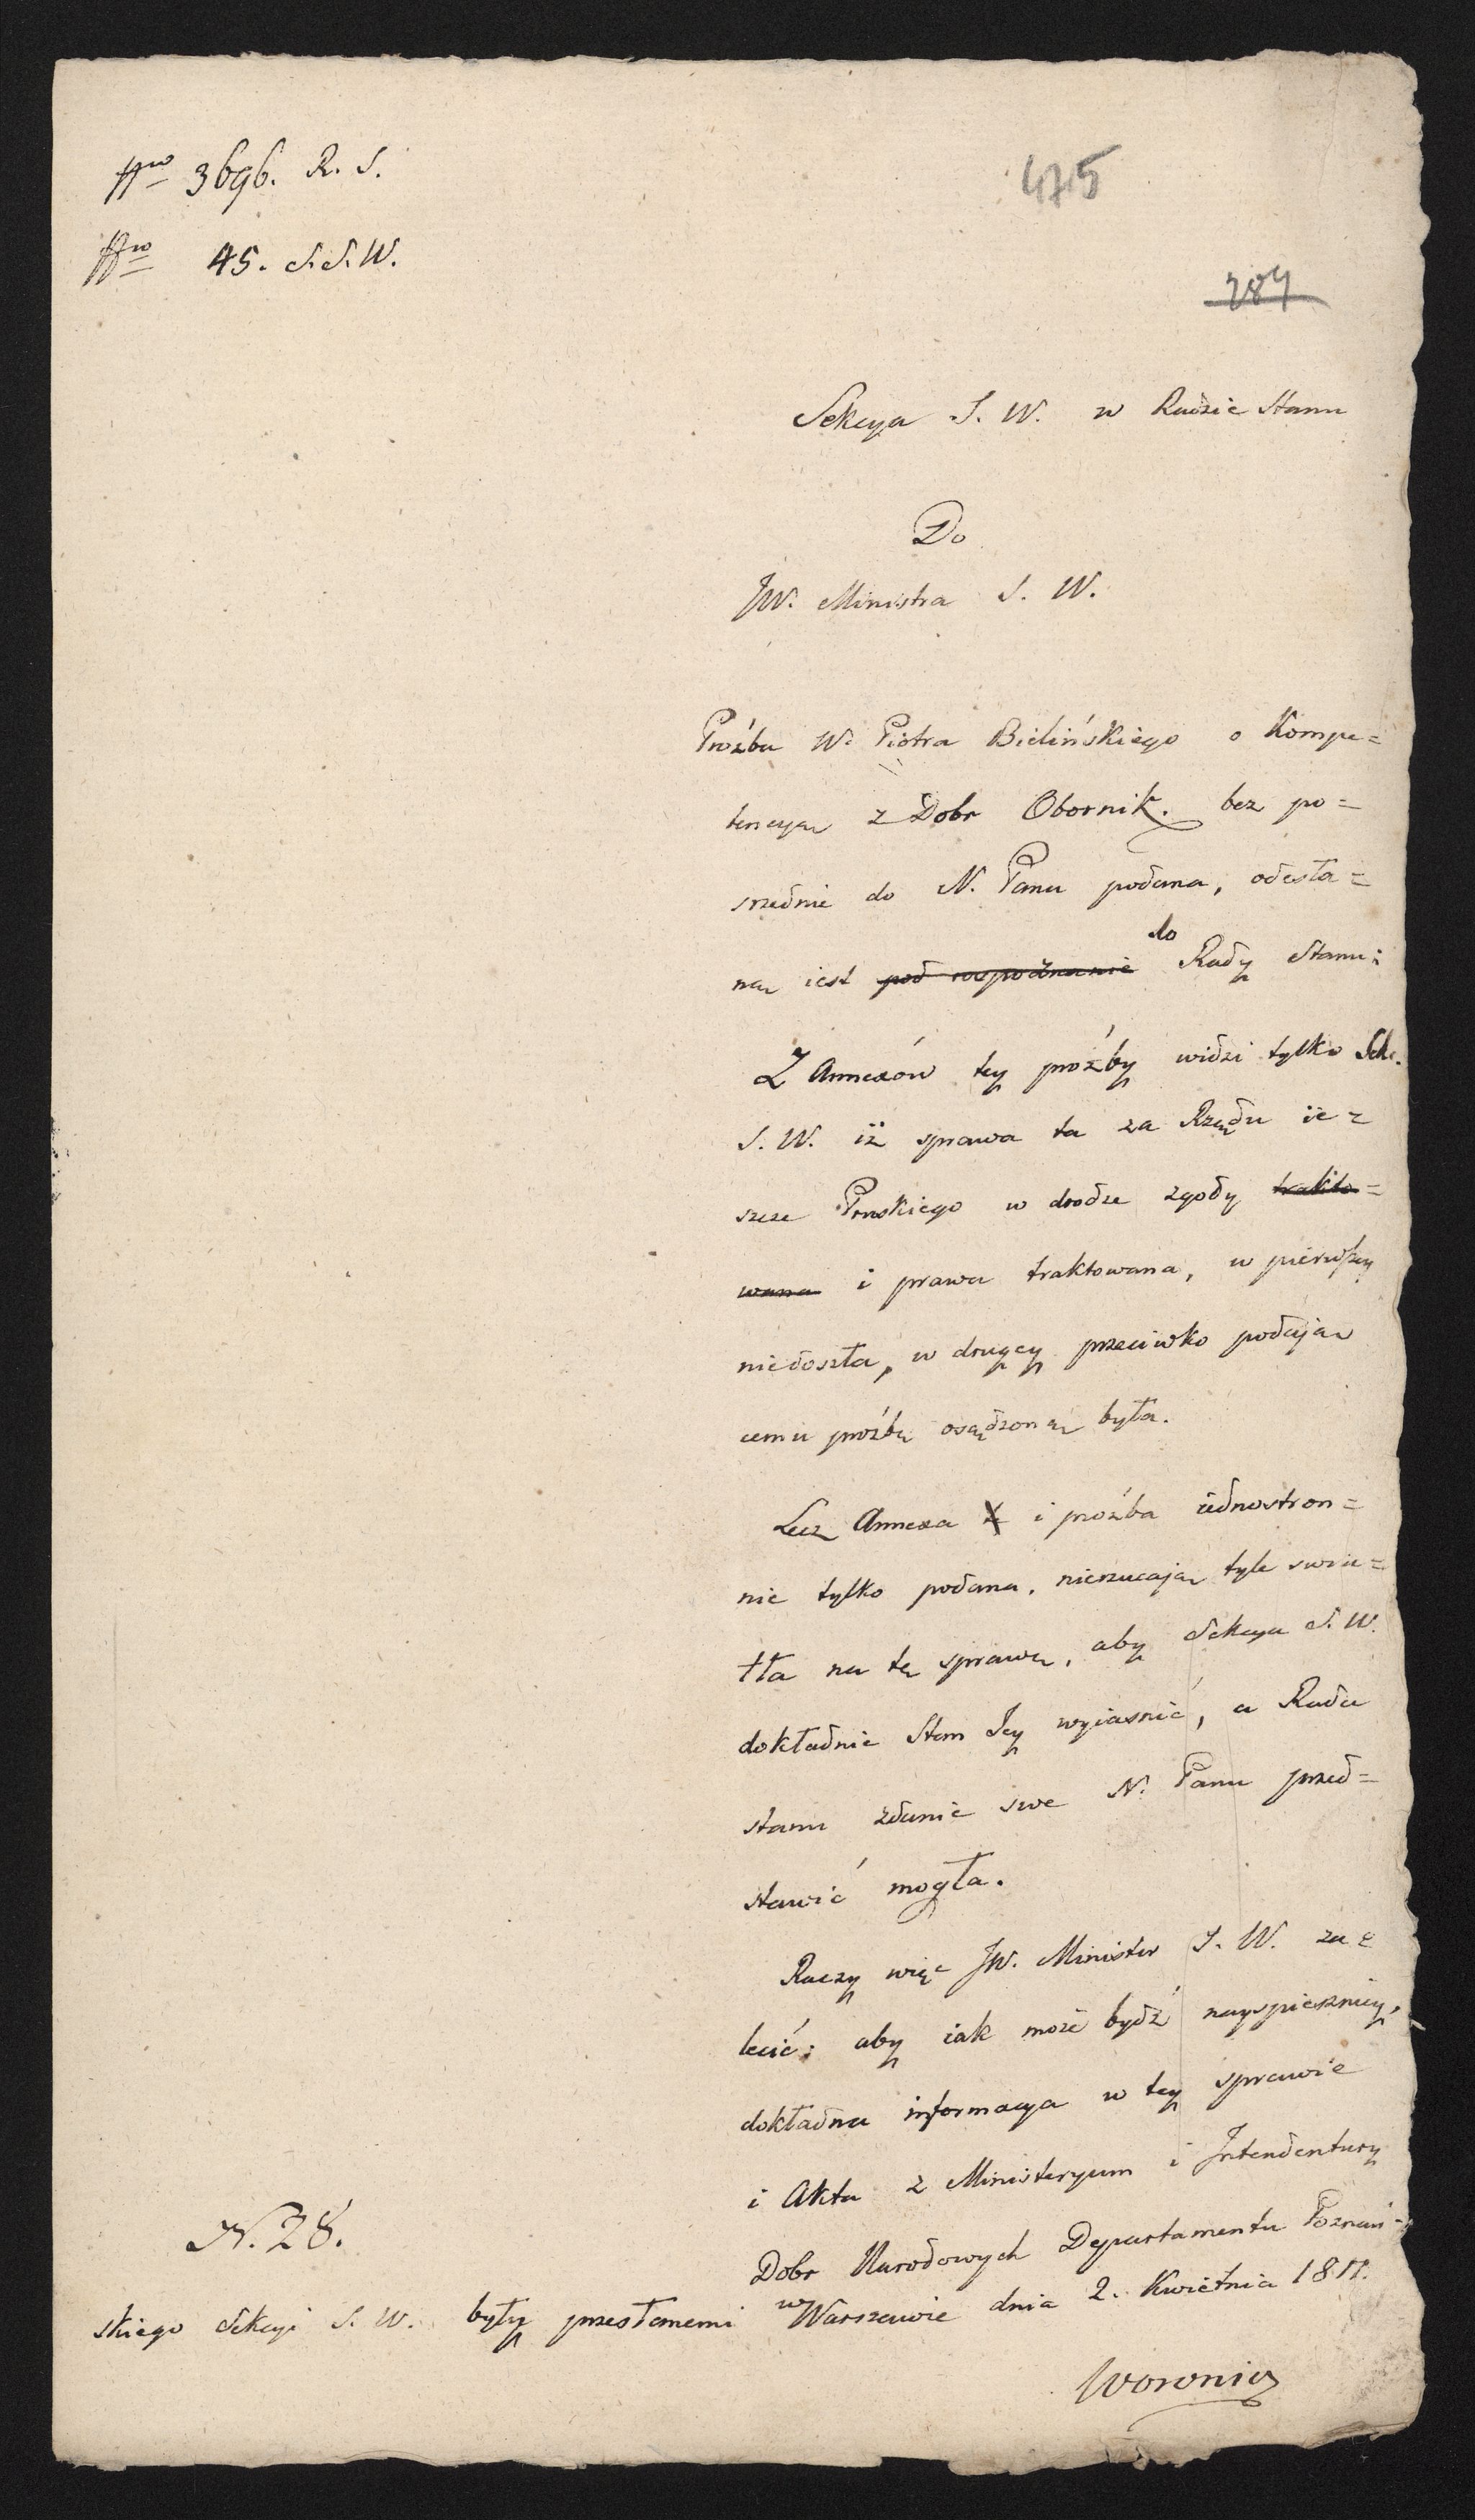 Nro 3696. R. S.
Nro 45. S. S. W.
475
284
Sekcya S. W. w Radzie Stanu
Do
JW. Ministra S. W.
Proźba W. Piotra Bielińskiego o Kompe=
tencyą z Dobr Obornik. bez po=
srzednie do N. Pana podana, odesła=
ną iest pod rozpoznanie do Rady Stanu:
Z Annexów tey proźby widzi tylko Sekc.
S. W. iż sprawa ta za Rządu ie=
szcze Pruskiego w drodze zgody trakto=
wana i prawa traktowana, w pierwszey
niedoszła, w drugey przeciwko podają
cemu proźbę osądzoną była.
Lecz Annexa i proźba iednostron=
nie tylko podana, nierzucają tyle swia=
tła na tę sprawę, aby Sekcya S. W.
dokładnie Stan Jey wyiasnić, a Rada
stanu zdanie swe N. Panu przed=
stawić mogła.
Raczy więc JW. Minister S. W. za=
lecić: aby iak może bydź nayspieszniey,
dokładna informacya w tey sprawie
i Akta z Ministeryum i Intendentury
Dobr Narodowych Departamentu Poznań=
skiego Sekcyi S. W. były przesłanemi w Warszawie dnia 2. Kwietnia 1811.
N. 28.
Woronicz